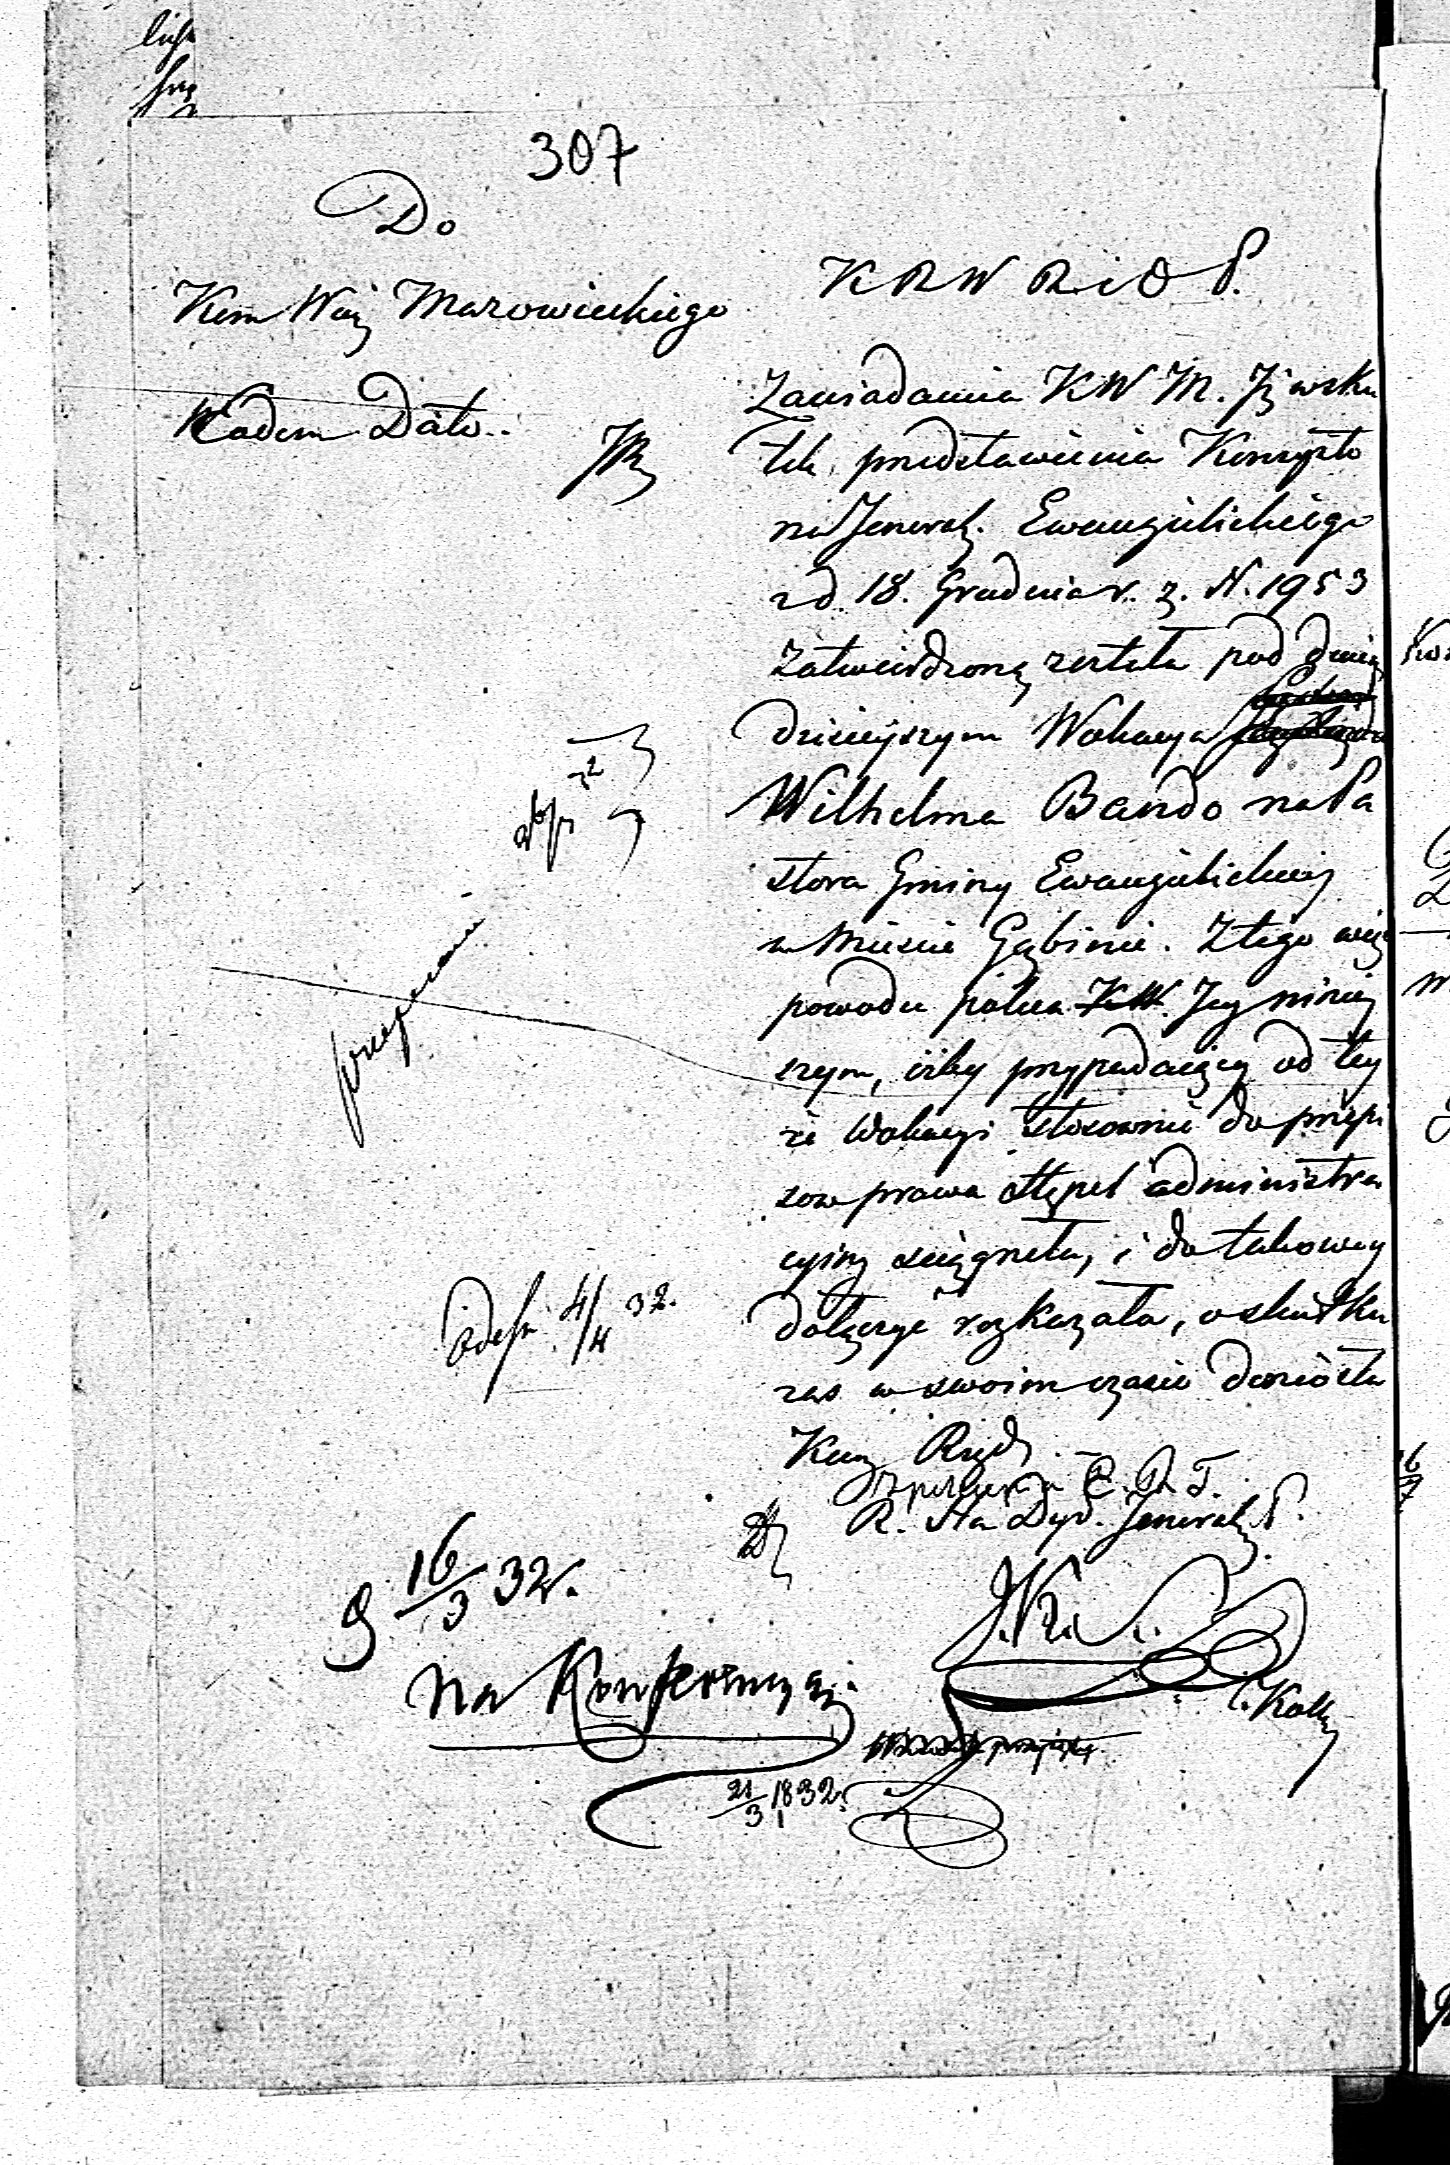 307
Do
Kom Woj Mazowieckiego
Eadem Dato.
K R W R i O P.
Zawiadamia KW M. Iż w sku
tek przedstawienia Konsysto
rza Jeneral. Ewangielickiego
z d. 18. Grudnia r. z. N. 1953
zatwierdzoną została pod dniem
dzisiejszym Wokacya
Wilhelma Bando na Pa
stora Gminy Ewangielickiey
w Mieście Gąbinie. Z tego więc
powodu poleca K W. Jey niniey
szym, iżby przypadaiący od tey
że Wokacyi stosownie do przepi
sow prawa stępel administra
cyiny sciągneła, i do takowey
dołączyć rozkazała, o skutku
zas w swoim czasie doniosła
Kom Rząd
R. Sta Dyr. Jeneral
przejrzane
4/4 32.
16/3 32 r.
Na Konferencyi
21/3 1832.